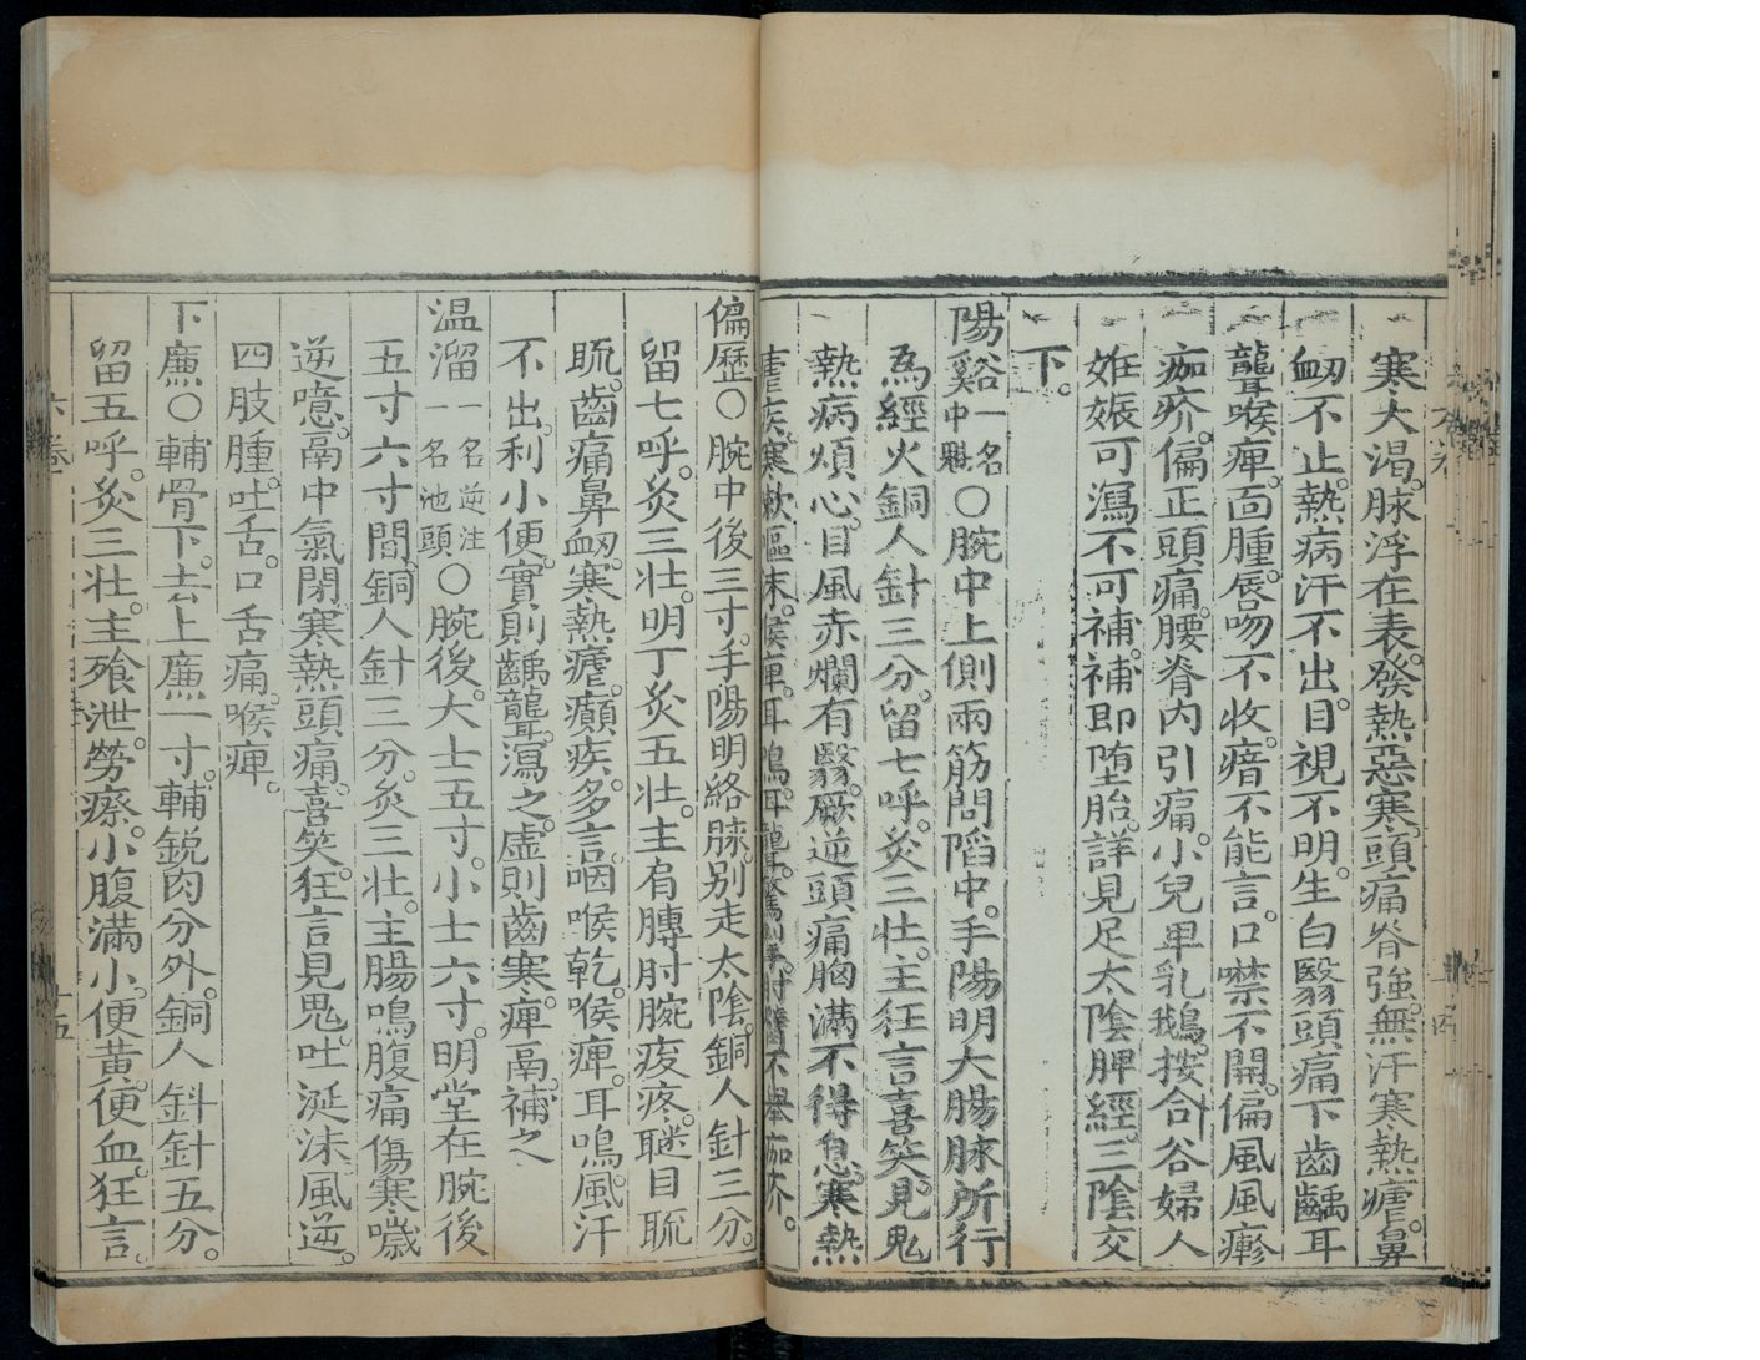 寒大渴。脉浮在表。發熱惡寒。頭痛脊強。無汗寒熱瘧。鼻
衂不止。熱病汗不出。目視不明。生白翳頭痛下齒齲耳
聾喉痺。面腫。唇吻不收。瘖不能言。口噤不開。偏風風瘮
痂疥。偏正頭痛。腰脊內引痛。小兒單乳鵝。按合谷婦人
姙娠可瀉不可補。補即墮胎。詳見足太陰脾經。三陰交
下。
陽谿一名中魁〇腕中上側兩筋間陷中。手陽明大腸脉所行
為經火銅人針三分。留七呼。灸三壯。主狂言喜笑。見鬼
熱病煩心。目風赤爛有翳。厥逆頭痛胸滿不得息。寒熱
瘧疾。寒嗽嘔沫。喉痺。耳鳴。耳聾。驚掣。肘臂不舉痂疥。
偏歷〇腕中後三寸。手陽明絡脉。別走太陰。銅人針三分。
留七呼。灸三壯。明下灸五壯。主肩膊肘腕痠疼。䁾目䀮
䀮。齒痛鼻衂。寒熱瘧。癲疾。多言。咽喉乾。喉痺。耳鳴。風汗
不出。利小便。實則齲聾。瀉之。虛則齒寒。痺鬲。補之
温溜一名逆注一名池頭〇腕後。大士五寸。小士六寸。明堂在腕後
五寸六寸間。銅人針三分。灸三壯。主腸鳴腹痛傷寒噦
逆噫。鬲中氣閉寒熱頭痛。喜笑狂言見鬼。吐涎沫風逆。
四肢腫。吐舌。口舌痛。喉痺。
下廉〇輔骨下。去上廉一寸。輔銳肉分外。銅人斜針五分。
留五呼。灸三壯。主飱泄。勞瘵。小腹滿。小便黃。便血。狂言。